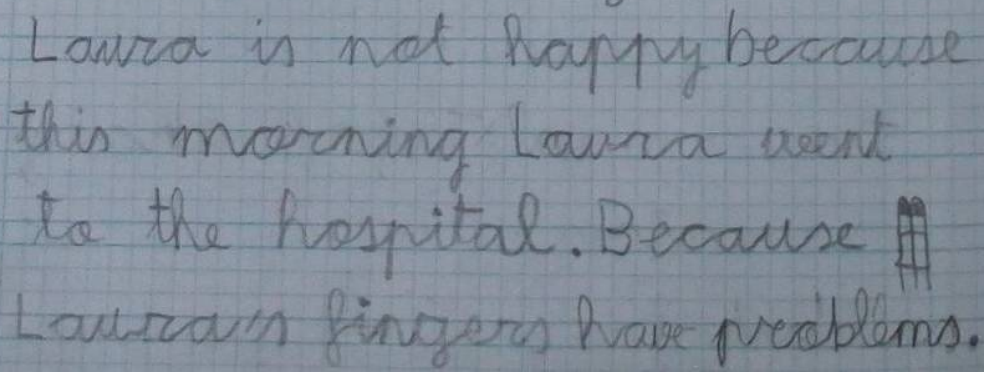 Laura is not happy because
this morning Laura went
to the hospital. Because
Lauras fingers have problems.